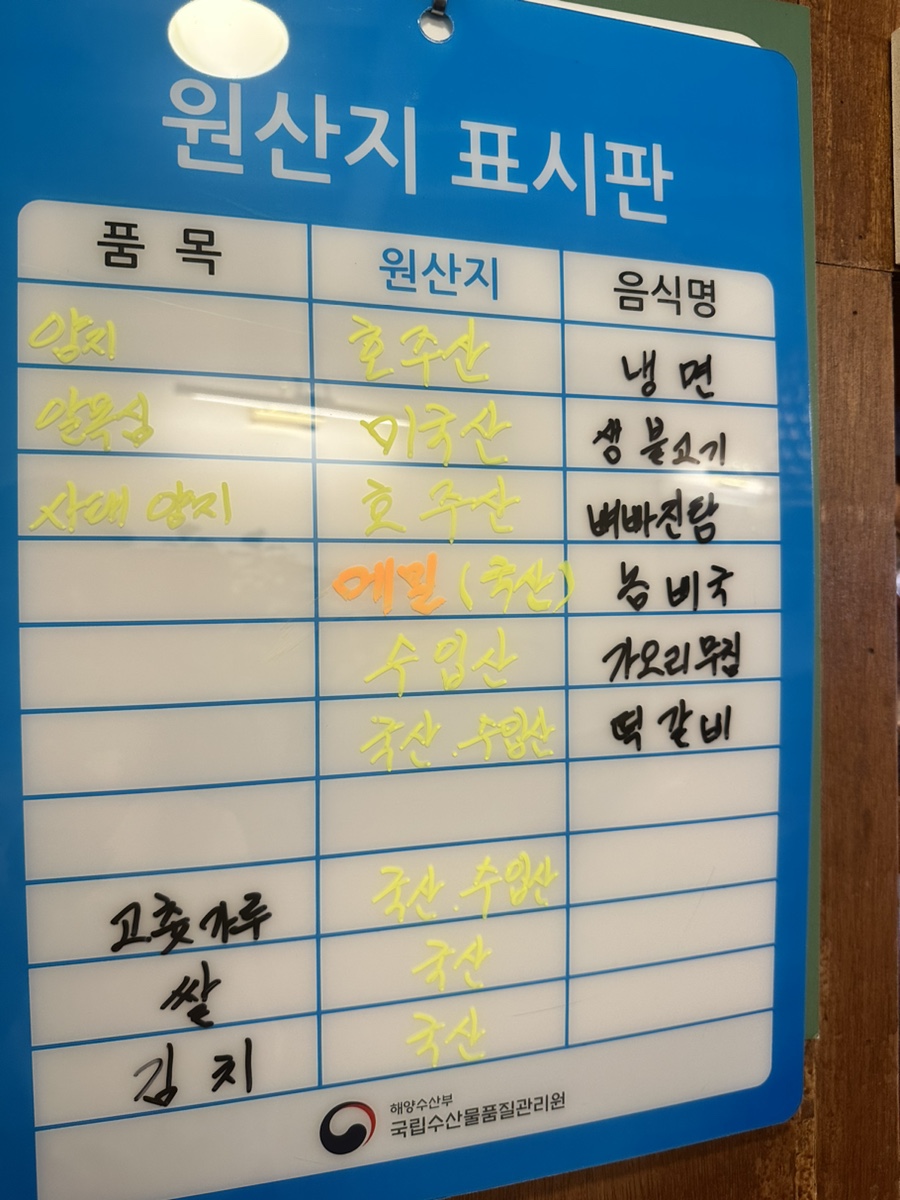 원산지 표시판
품 목 원산지 음식명
양지 호주산 냉 면
알목심 미국산 생 불고기
사태 양지 호주산 뼈바진탕
에밀 (국산) 농 비국
수입산 가오리무침
국산 . 수입산 떡 갈 비
고춧가루 국산 . 수입산
쌀 국산
김 치 국산
해양수산부
국립수산물품질관리원